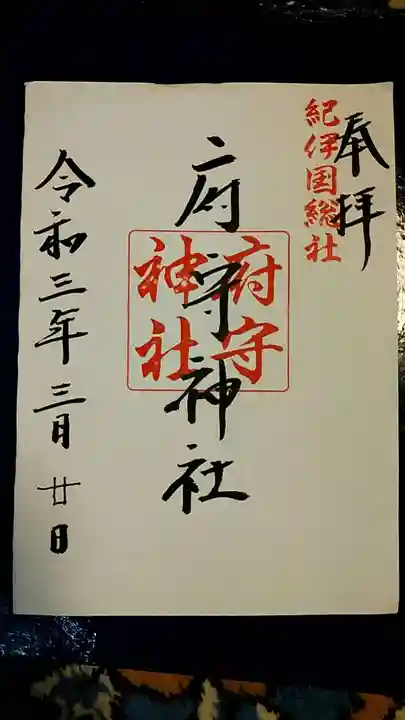 奉拝
紀伊国総社
府守神社
府守
神社
令和三年三月廿日